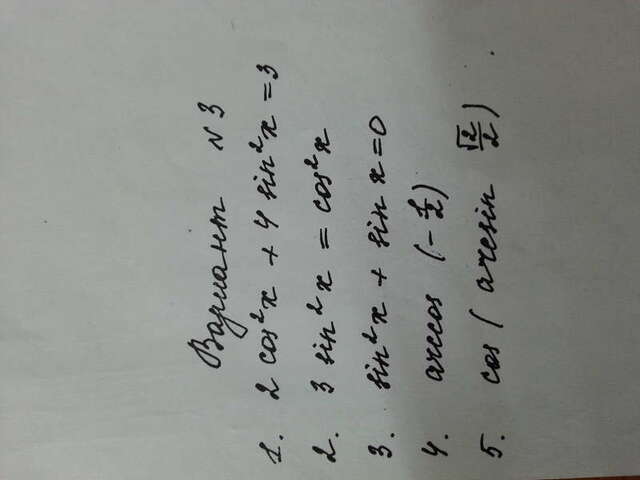 Вариант N 3
1. 2 cos²x + 4 sin²x = 3
2. 3 sin²x = cos²x
3. sin²x + sin x = 0
4. arccos (-1/2)
5. cos ( arcsin √2/2 ) .